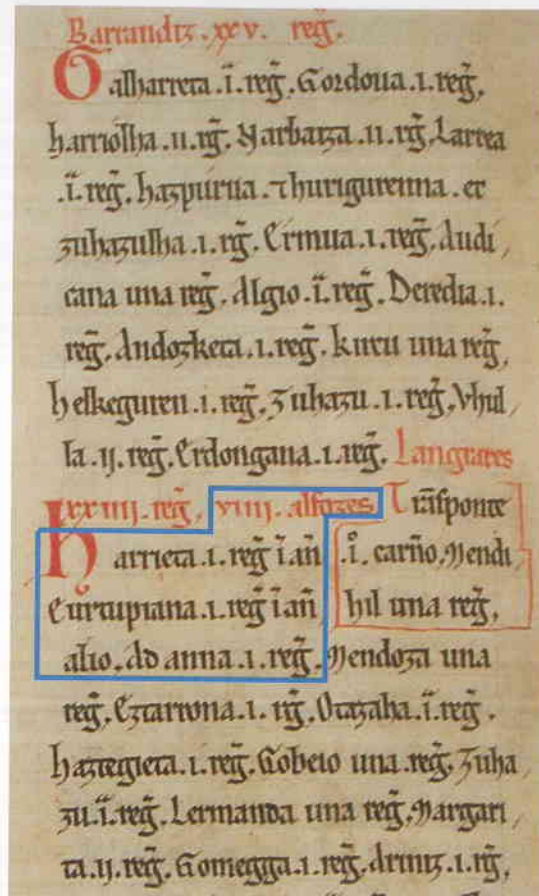 Barrandiz .xxv. reg̃.
Galharreta .i. reg̃. Gordoua .i. reg̃.
harriolha .ii. rg̃. Narbaiza .ii. rg̃. Larrea
.i. reg̃. hazpurua. ⁊ hurigurenna. et
zuhazulha .i. rg̃. Ermua .i. reg̃. Audi,
cana una reg̃. Algio .i. reg̃. Deredia .i.
reg̃. Andozketa .i. reg̃. kircu una reg̃,
helkeguren .i. reg̃. Zuhazu .i. reg̃. Vhul,
la .ij. reg̃. Erdongana .i. reg̃. Langrares
xxiiii. reg̃. viiii. alfozes Trãsponte
harrieta .i. reg̃ ĩ añ .i. carño. Mendi
Eurtupiana .i. reg̃ ĩ añ hil una reg̃,
alio. Adanna .i. reg̃. Mendoza una
reg̃. Eztarrona .i. rg̃. Otazaha .i. reg̃.
haztegieta .i. reg̃. Gobeio una reg̃. Zuha,
zu .i. reg̃. Lermanda una reg̃. Margari,
ta .ij. reg̃. Gomegga .i. reg̃. Ariniz .i. rg̃,